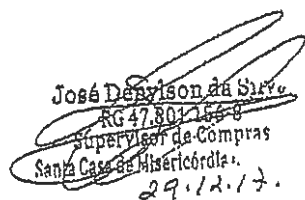 José Denylson da Silva
RG 47.801.156-8
Supervisor de Compras
Santa Casa de Misericórdia
29.12.17.